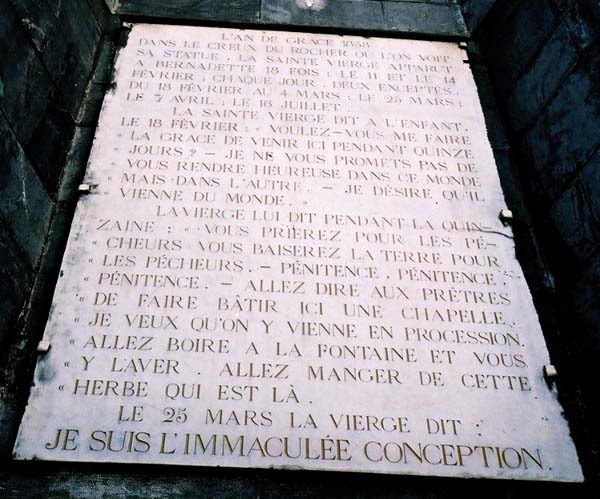 L'AN DE GRACE 1858
DANS LE CREUX DU ROCHER OU L'ON VOIT
SA STATUE, LA SAINTE VIERGE APPARUT
A BERNADETTE 18 FOIS : LE 11 ET LE 14
FÉVRIER ; CHAQUE JOUR, DEUX EXCEPTÉS,
DU 18 FÉVRIER AU 4 MARS ; LE 25 MARS ;
LE 7 AVRIL ; LE 16 JUILLET.
LA SAINTE VIERGE DIT A L'ENFANT,
LE 18 FÉVRIER : " VOULEZ-VOUS ME FAIRE
" LA GRACE DE VENIR ICI PENDANT QUINZE
" JOURS ? – JE NE VOUS PROMETS PAS DE
" VOUS RENDRE HEUREUSE DANS CE MONDE
" MAIS DANS L'AUTRE. – JE DÉSIRE QU'IL
VIENNE DU MONDE. "
LA VIERGE LUI DIT PENDANT LA QUIN-
ZAINE : " VOUS PRIEREZ POUR LES PÉ-
" CHEURS VOUS BAISEREZ LA TERRE POUR
" LES PÉCHEURS. – PÉNITENCE, PÉNITENCE,
" PÉNITENCE. – ALLEZ DIRE AUX PRÊTRES
" DE FAIRE BÂTIR ICI UNE CHAPELLE.
" JE VEUX QU'ON Y VIENNE EN PROCESSION.
" ALLEZ BOIRE A LA FONTAINE ET VOUS
" Y LAVER. ALLEZ MANGER DE CETTE
" HERBE QUI EST LÀ.
LE 25 MARS LA VIERGE DIT :
JE SUIS L'IMMACULÉE CONCEPTION.